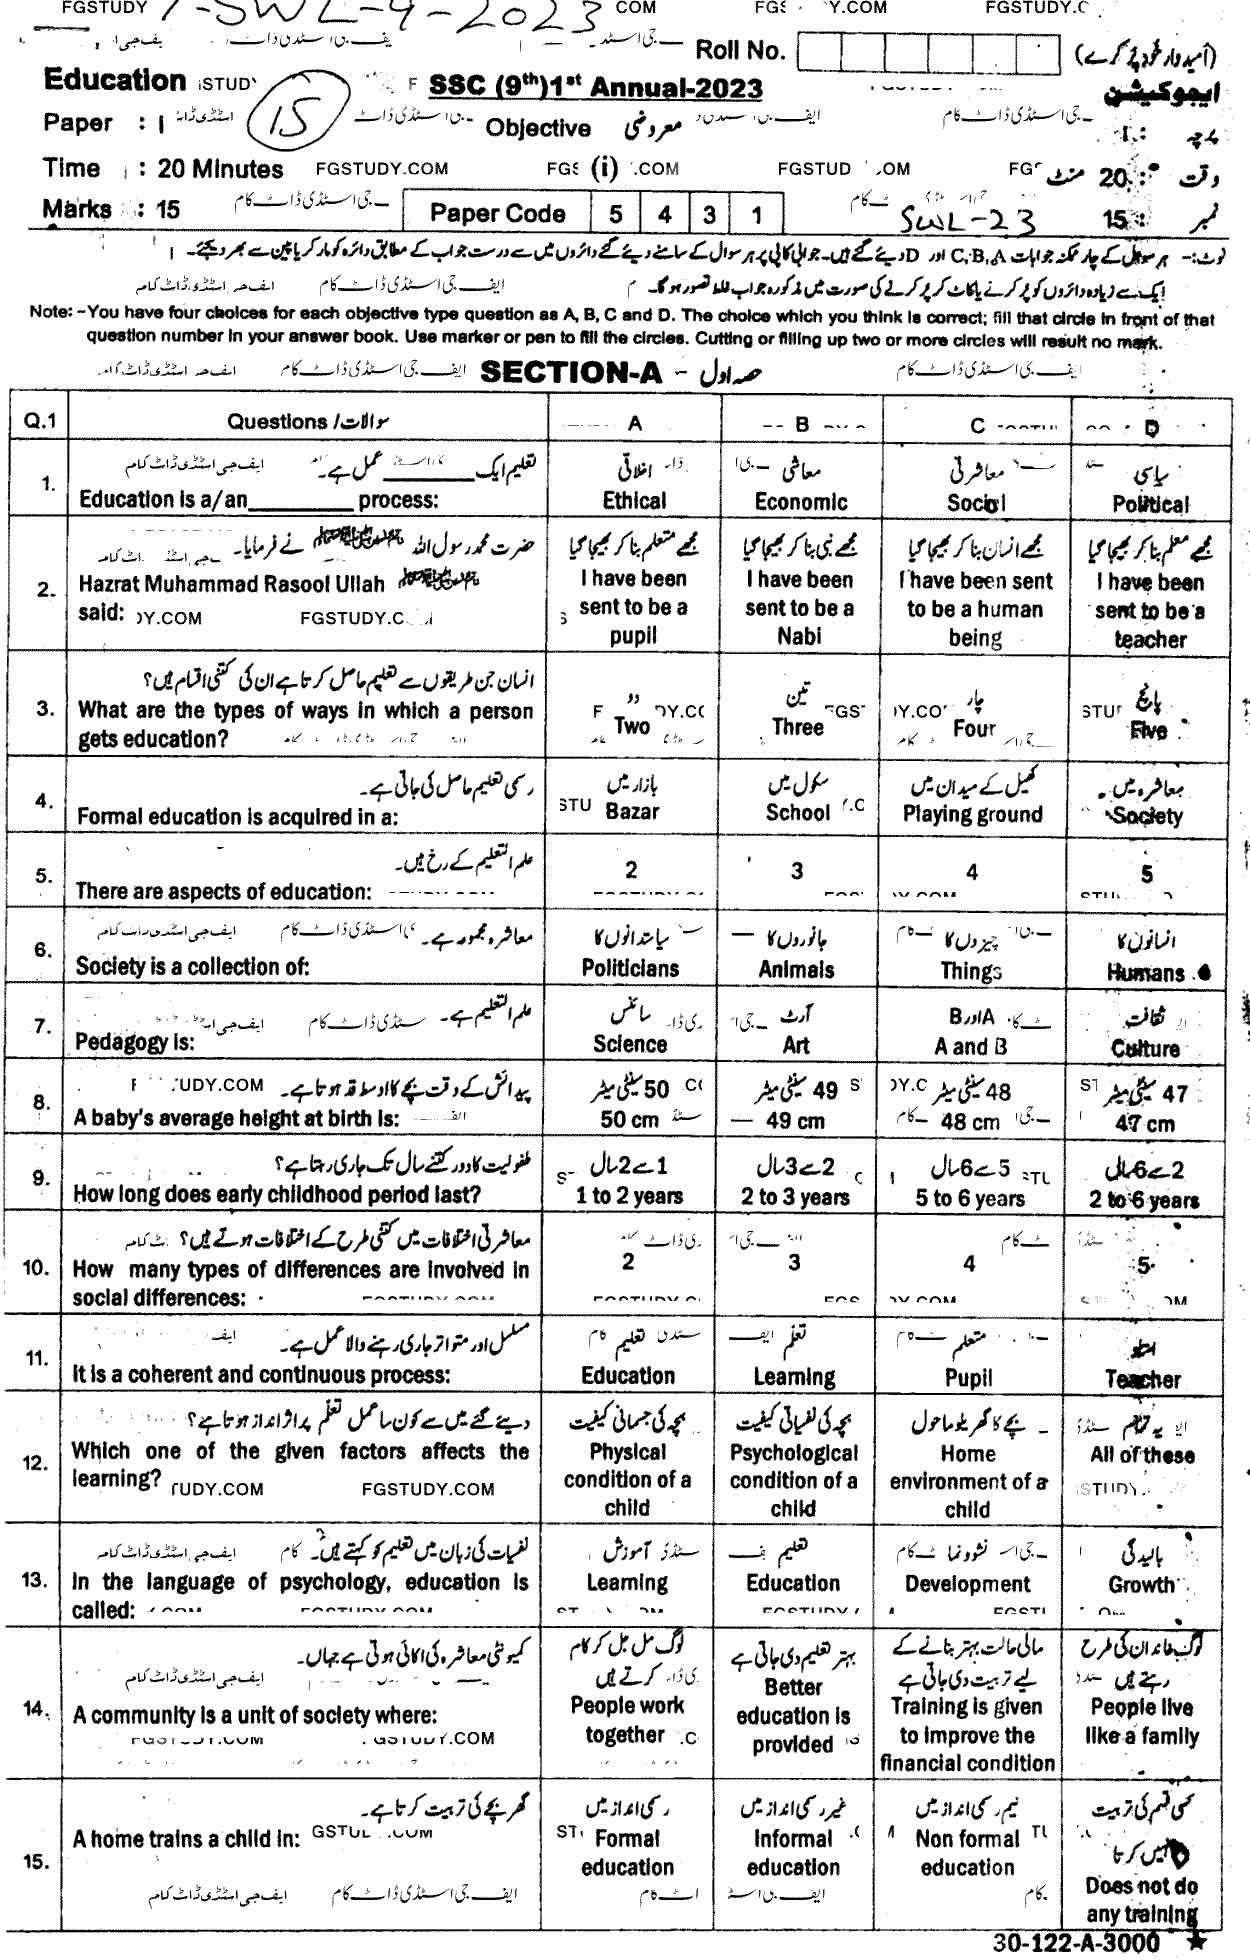 FGSTUDY 7-SWL-9-2023 COM FGS Y.COM FGSTUDY.C
Roll No. (امیدوار خود پُر کرے)
Education SSC (9th)1st Annual-2023 ایجوکیشن
Paper : I 15 Objective معروضی پرچہ : I
Time : 20 Minutes FGSTUDY.COM (i) .COM وقت : 20 منٹ
Marks : 15 Paper Code 5 4 3 1 SWL-23 نمبر : 15
نوٹ:- ہر سوال کے چار ممکنہ جوابات C,B,A اور D دیئے گئے ہیں۔ جوابی کاپی پر ہر سوال کے سامنے دیئے گئے دائروں میں سے درست جواب کے مطابق دائرہ کو مارکر یا پین سے بھر دیجئے۔
ایک سے زیادہ دائروں کو پُر کرنے یا کاٹ کر پُر کرنے کی صورت میں مذکورہ جواب غلط تصور ہوگا۔
Note: -You have four choices for each objective type question as A, B, C and D. The choice which you think is correct; fill that circle in front of that
question number in your answer book. Use marker or pen to fill the circles. Cutting or filling up two or more circles will result no mark.
SECTION-A - حصہ اول
Q.1 Questions / سوالات A B C D
1. تعلیم ایک ________ عمل ہے۔ اخلاقی معاشی معاشرتی سیاسی
Education is a/an ________ process: Ethical Economic Social Political
2. حضرت محمد رسول اللہ ﷺ نے فرمایا۔ مجھے متعلم بنا کر بھیجا گیا مجھے نبی بنا کر بھیجا گیا مجھے انسان بنا کر بھیجا گیا مجھے معلم بنا کر بھیجا گیا
Hazrat Muhammad Rasool Ullah ﷺ I have been I have been I have been sent I have been
said: FGSTUDY.C sent to be a sent to be a to be a human sent to be a
pupil Nabi being teacher
3. انسان جن طریقوں سے تعلیم حاصل کرتا ہے ان کی کتنی اقسام ہیں؟ دو تین چار پانچ
What are the types of ways in which a person Two Three Four Five
gets education?
4. رسمی تعلیم حاصل کی جاتی ہے۔ بازار میں سکول میں کھیل کے میدان میں معاشرہ میں
Formal education is acquired in a: Bazar School Playing ground Society
5. علم التعلیم کے رخ ہیں۔ 2 3 4 5
There are aspects of education:
6. معاشرہ مجموعہ ہے۔ سیاستدانوں کا جانوروں کا چیزوں کا انسانوں کا
Society is a collection of: Politicians Animals Things Humans
7. علم التعلیم ہے۔ سائنس آرٹ A اور B ثقافت
Pedagogy is: Science Art A and B Culture
8. پیدائش کے وقت بچے کا اوسط قد ہوتا ہے۔ 50 سینٹی میٹر 49 سینٹی میٹر 48 سینٹی میٹر 47 سینٹی میٹر
A baby's average height at birth is: 50 cm 49 cm 48 cm 47 cm
9. طفولیت کا دور کتنے سال تک جاری رہتا ہے؟ 1 سے 2 سال 2 سے 3 سال 5 سے 6 سال 2 سے 6 سال
How long does early childhood period last? 1 to 2 years 2 to 3 years 5 to 6 years 2 to 6 years
10. معاشرتی اختلافات میں کتنی طرح کے اختلافات ہوتے ہیں؟ 2 3 4 5
How many types of differences are involved in
social differences:
11. مسلسل اور متواتر جاری رہنے والا عمل ہے۔ تعلیم تعلّم متعلم استاد
It is a coherent and continuous process: Education Learning Pupil Teacher
12. دیئے گئے میں سے کون سا عمل تعلّم پر اثر انداز ہوتا ہے؟ بچہ کی جسمانی کیفیت بچہ کی نفسیاتی کیفیت بچے کا گھریلو ماحول یہ تمام
Which one of the given factors affects the Physical Psychological Home All of these
learning? FGSTUDY.COM condition of a condition of a environment of a
child child child
13. نفسیات کی زبان میں تعلیم کو کہتے ہیں۔ آموزش تعلیم نشوونما بالیدگی
In the language of psychology, education is Learning Education Development Growth
called:
14. کمیونٹی معاشرہ کی اکائی ہوتی ہے جہاں۔ لوگ مل جل کر کام کرتے ہیں بہتر تعلیم دی جاتی ہے مالی حالت بہتر بنانے کے لیے تربیت دی جاتی ہے لوگ خاندان کی طرح رہتے ہیں
A community is a unit of society where: People work Better Training is given People live
together education is to improve the like a family
provided financial condition
15. گھر بچے کی تربیت کرتا ہے۔ رسمی انداز میں غیر رسمی انداز میں نیم رسمی انداز میں کسی قسم کی تربیت نہیں کرتا
A home trains a child in: Formal Informal Non formal Does not do
education education education any training
30-122-A-3000 ★